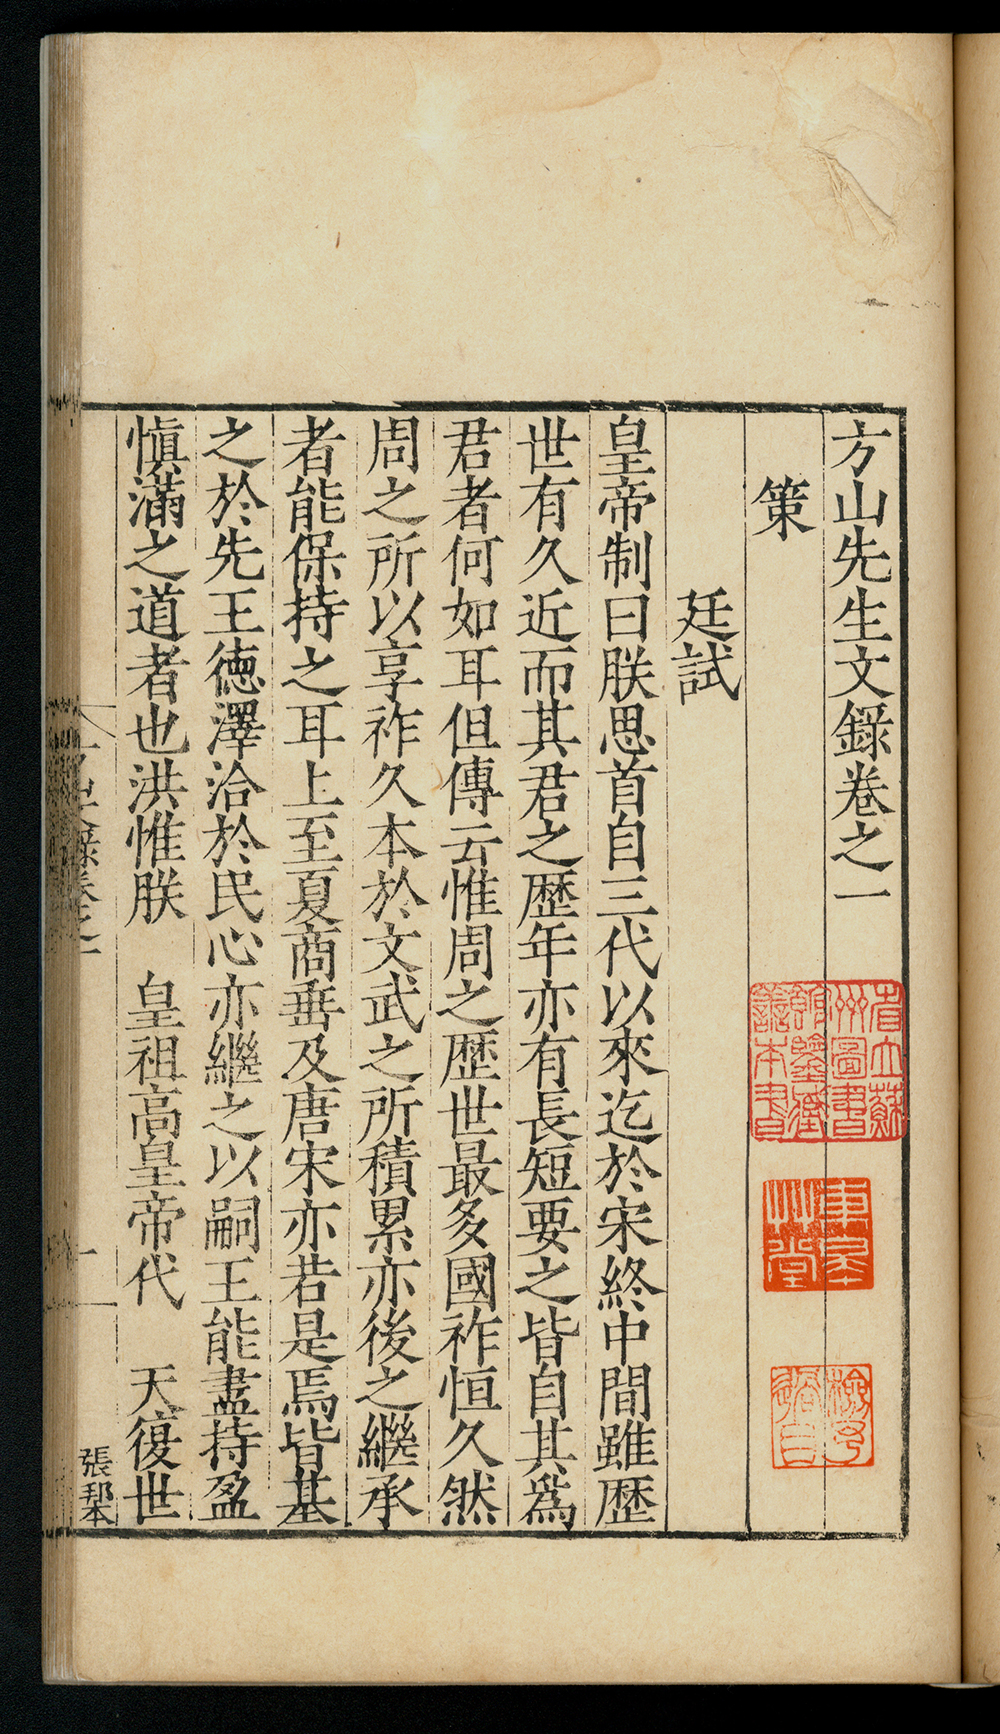 方山先生文錄卷之一
策
廷試
皇帝制曰朕思首自三代以來迄於宋終中間雖歷
世有久近而其君之歷年亦有長短要之皆自其爲
君者何如耳但傳云惟周之歷世最多國祚恒久然
周之所以享祚久本於文武之所積累亦後之繼承
者能保持之耳上至夏商垂及唐宋亦若是焉皆基
之於先王德澤洽於民心亦繼之以嗣王能盡持盈
慎滿之道者也洪惟朕　皇祖高皇帝代　天復世
張邦本
省立蘇
州圖書
館鑒藏
善本書